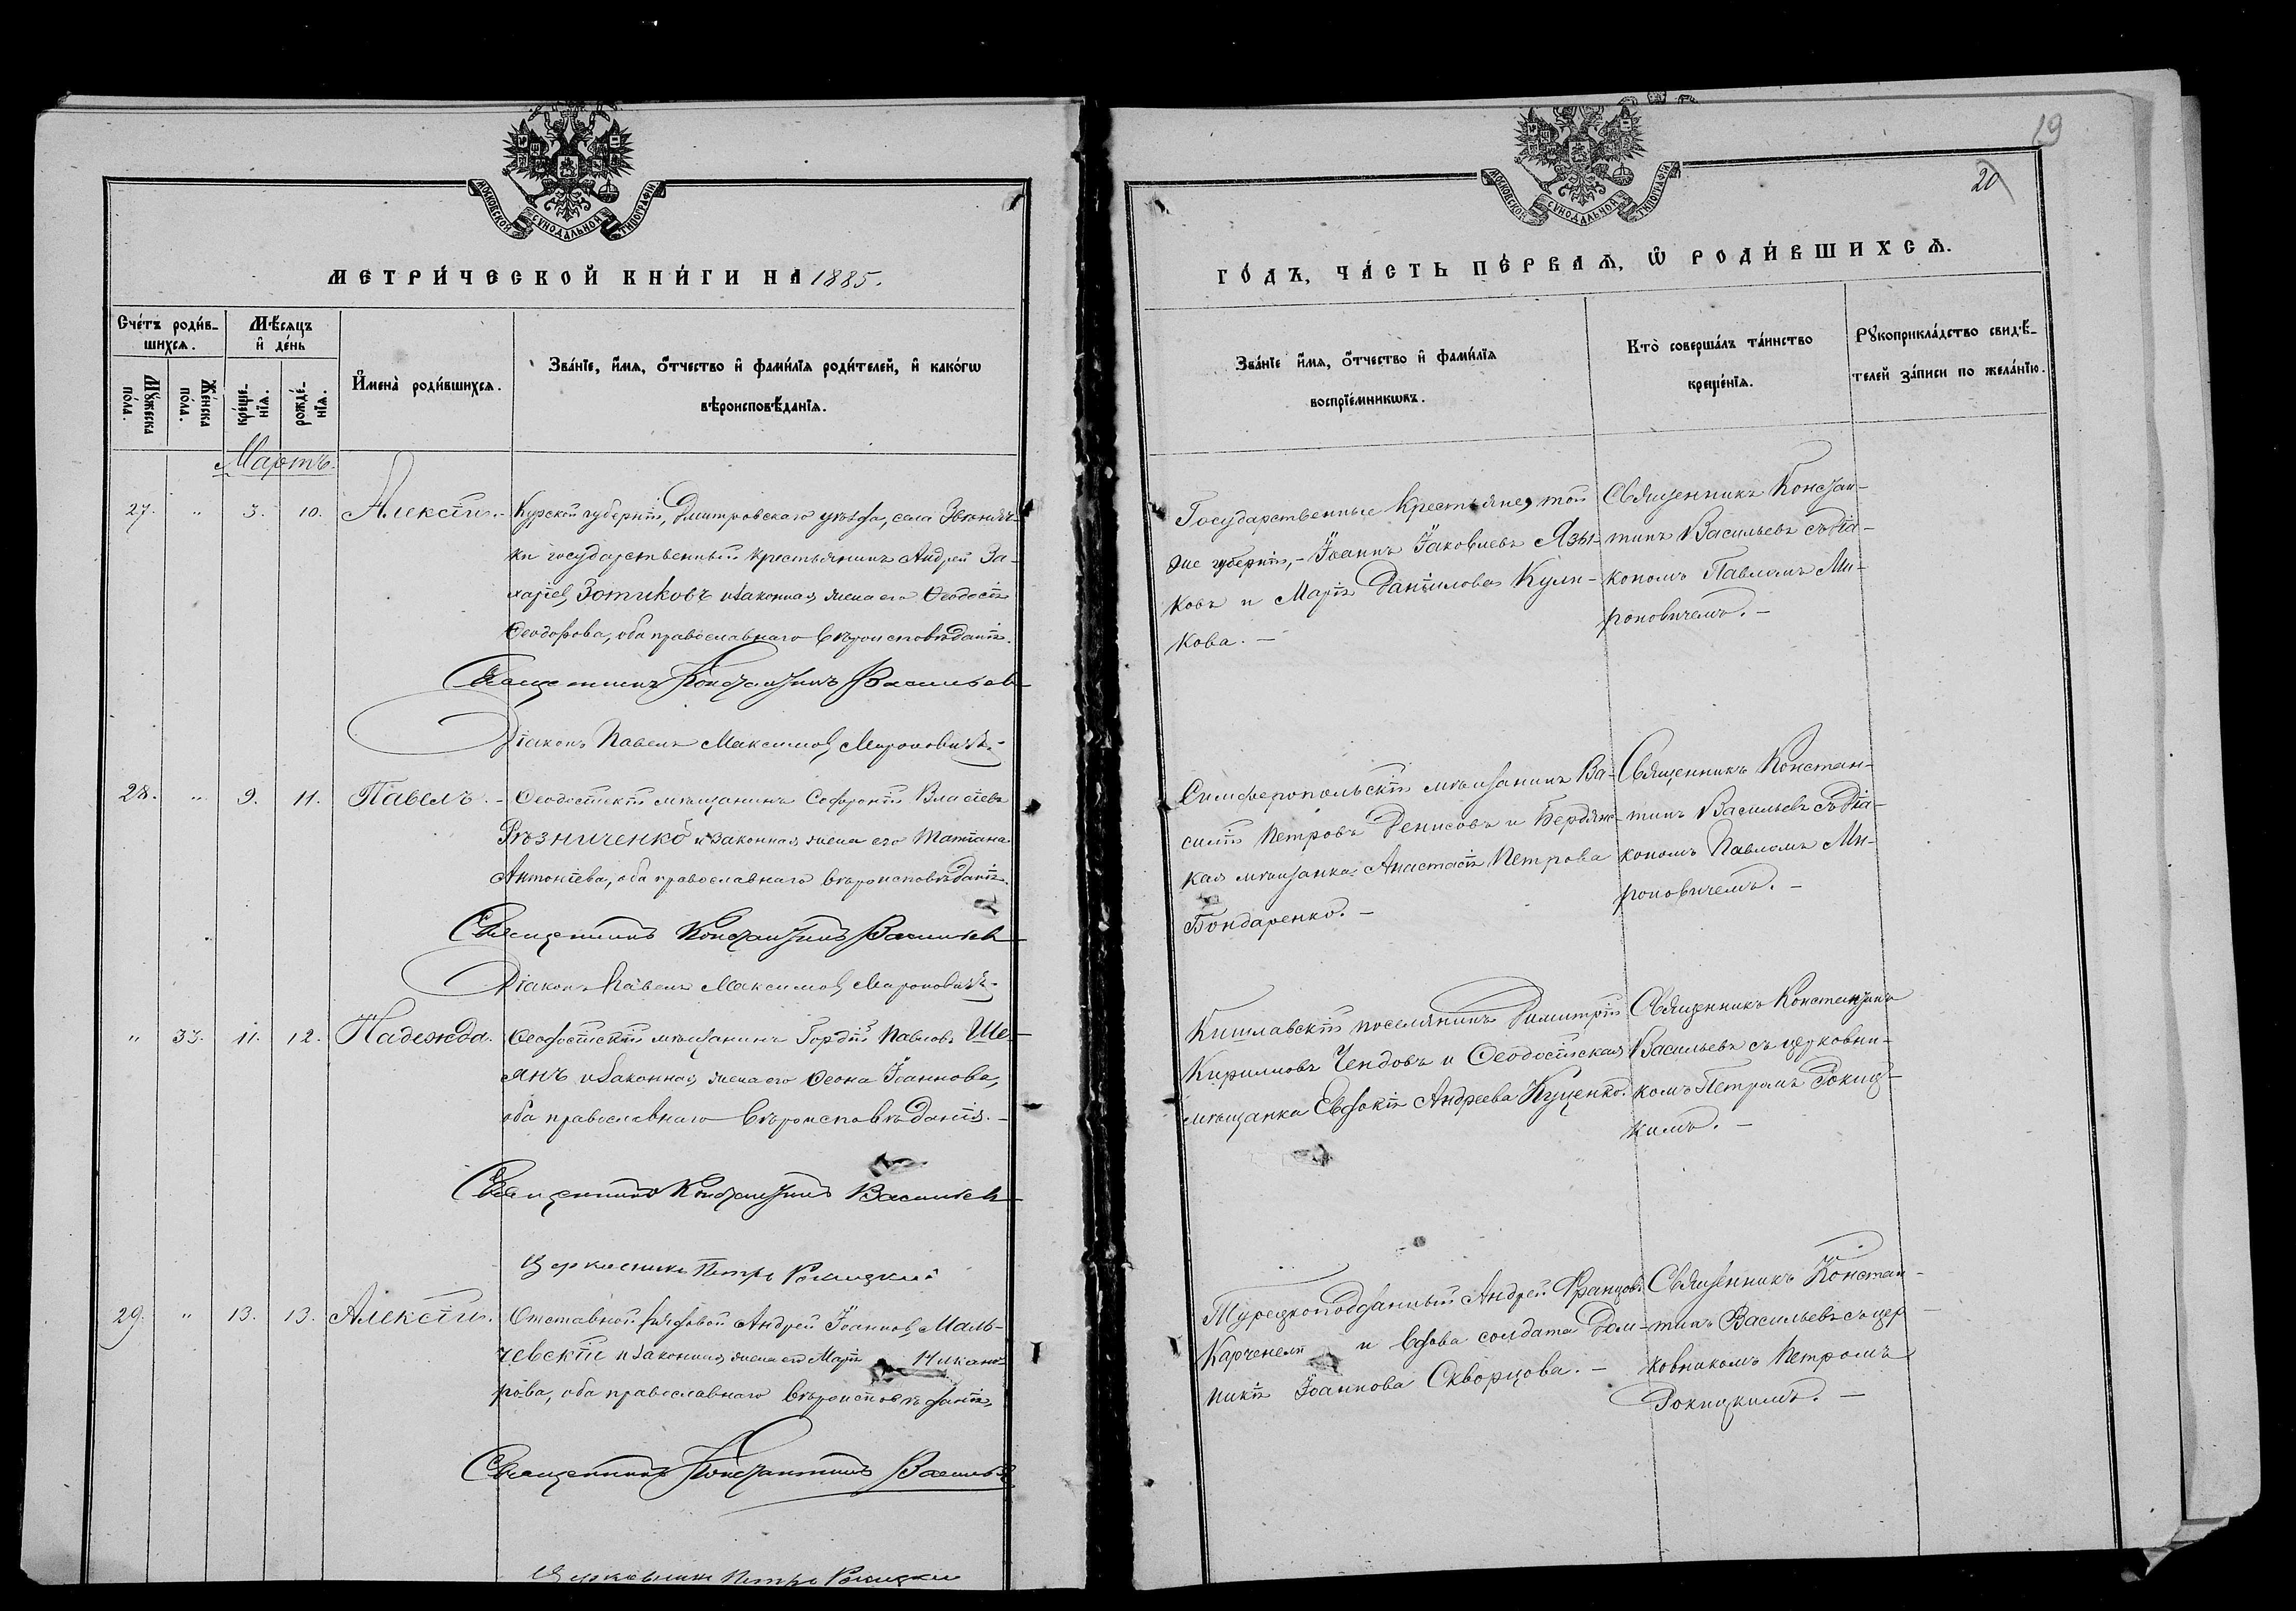 МОСКОВСКОЙ СУНОДАЛЬНОЙ ТИПОГРАФІИ
МЕТРИ́ЧЕСКОЙ КНИ́ГИ НА 1885.
Сче́тъ роди́в-
шихсѧ.
Мѣ́сѧцъ
и҆ де́нь
И҆мена̀ роди́вшихсѧ.
Зва́нїе, и҆́мѧ, ѻ҆́тчество и҆ фами́лїѧ роди́телей, и҆ како́гѡ
вѣроисповѣ́данїѧ.
Мꙋ́жеска
по́ла.
Же́нска
по́ла.
креще́-
нїѧ.
рожде́-
нїѧ.
Мартъ.
27. " 3. 10. Алексій. - Курской губерніи, Дмитровскаго уѣзда, села
ки государственный крестьянинъ Андрей За-
харіев Зотиковъ и законная жена его Ѳеодосія
Ѳеодорова, оба православнаго вѣроисповѣданія.
Священникъ Константинъ Васильевъ
Діаконъ Павелъ Максимов Мироновичъ.
28. " 9. 11. Павелъ. - Ѳеодосійскій мѣщанинъ Софроній Власіевъ
Рѣзниченко и законная жена его Татіана
Антоніева, оба православнаго вѣроисповѣданія.
Священникъ Константинъ Васильевъ
Діаконъ Павелъ Максимов Мироновичъ.
" 33. 11. 12. Надежда. Ѳеодосійскій мѣщанинъ Гордій Павловъ Ше-
янъ и законная жена его Ѳеона Іоаннова,
оба православнаго вѣроисповѣданія. -
Священникъ Константинъ Васильевъ
Церковникъ Петръ Рокицкій
29. " 13. 13. Алексій. Отставной рядовой Андрей Іоаннов Маль-
чевскій и законная жена его Марія Никано-
рова, оба православнаго вѣроисповѣданія.
Священникъ Константинъ Васильевъ
Церковникъ Петръ Рокицкій
19
20
МОСКОВСКОЙ СУНОДАЛЬНОЙ ТИПОГРАФІИ
ГО́ДЪ, ЧА́СТЬ ПЕ́РВАѦ, Ѡ҆ РОДИ́ВШИХСѦ.
Зва́нїе и҆́мѧ, ѻ҆́тчество и҆ фами́лїѧ
воспрїе́мникѡвъ.
Кто̀ соверша́лъ та́инство
креще́нїѧ.
Рꙋкоприкла́дство свидѣ́-
телей за́писи по жела́нїю.
Государственные крестьяне, той
же губерніи, - Іоаннъ Іаковлевъ Язы-
ковъ и Марія Даніилова Кули-
кова. -
Священникъ Констан-
тинъ Васильевъ съ діа-
кономъ Павломъ Ми-
роновичемъ. -
Симферопольскій мѣщанинъ Ва-
силій Петровъ Денисовъ и Бердянс-
кая мѣщанка Анастасія Петрова
Бондаренко. -
Священникъ Констан-
тинъ Васильевъ съ діа-
кономъ Павломъ Ми-
роновичемъ. -
Кишлавскій поселянинъ Димитрій
Кирилловъ Чендовъ и Ѳеодосійская
мѣщанка Евдокія Андреева Куценко.
Священникъ Константинъ
Васильевъ съ церковни-
комъ Петромъ Рокиц-
кимъ. -
Турецкоподданный Андрей Францовъ
Карченели и вдова солдата Дом-
никія Іоаннова Скворцова. -
Священникъ Констан-
тинъ Васильевъ съ цер-
ковникомъ Петромъ
Рокицкимъ. -